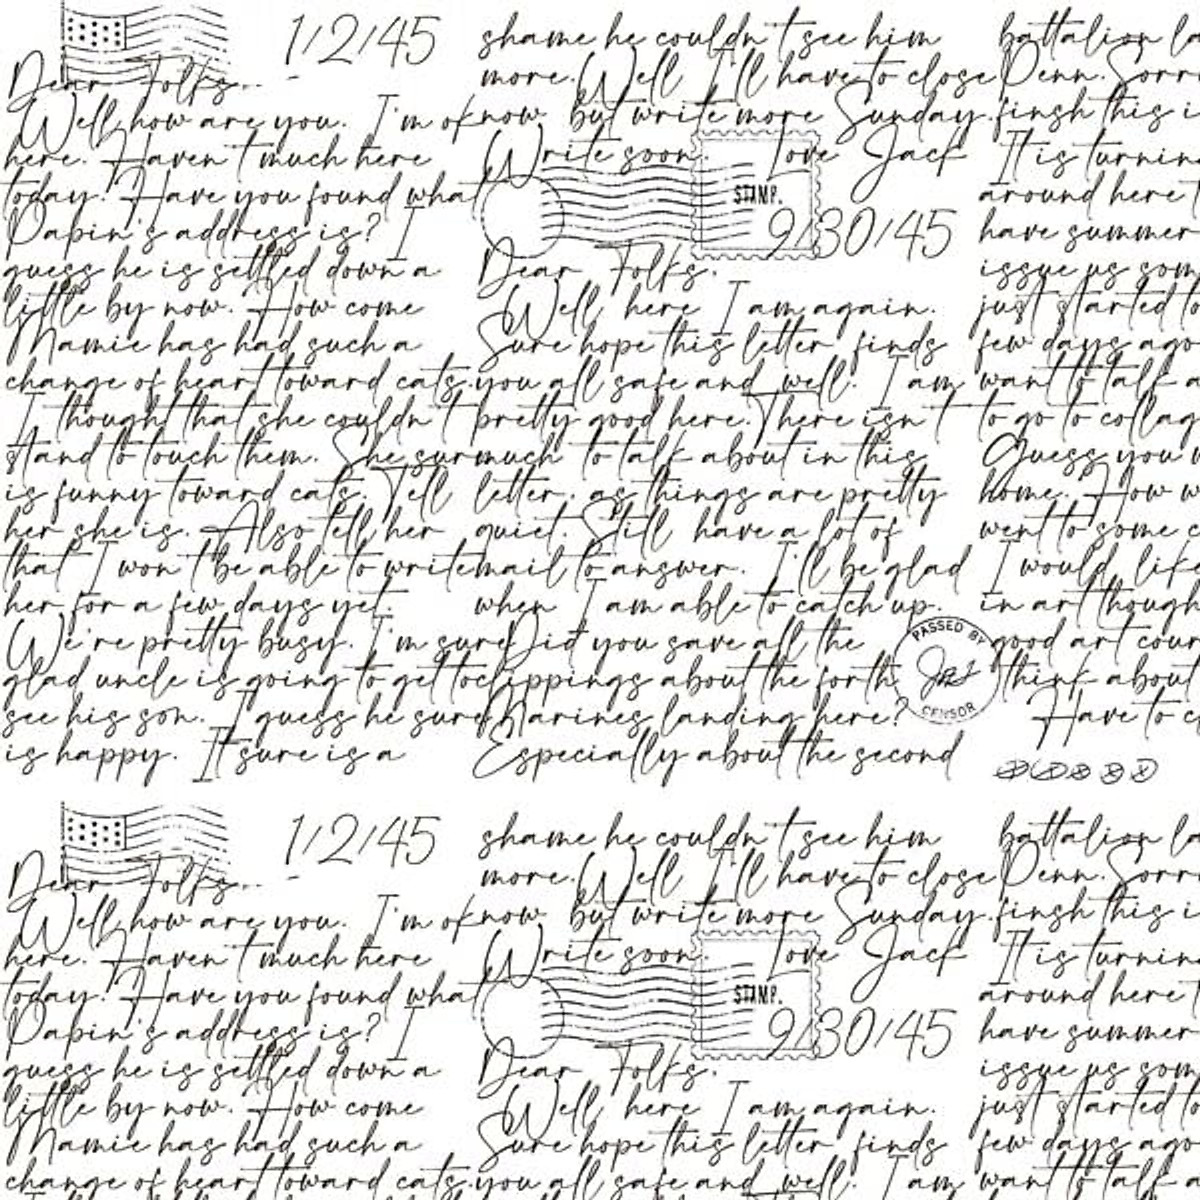 1/2/45
Dear Folks...
Well how are you. I'm ok
here. Haven't much here
today. Have you found what
Papin's address is? I
guess he is settled down a
little by now. How come
Mamie has had such a
change of heart toward cats.
I thought that she couldn't
stand to touch them. She sur
is funny toward cats. Tell
her she is. Also tell her
that I won't be able to write
her for a few days yet.
We're pretty busy. I'm sure
glad uncle is going to get to
see his son. I guess he sure
is happy. It sure is a
shame he couldn't see him
more. Well I'll have to close
now but write more Sunday.
Write soon. Love Jack
STAMP.
9/30/45
Dear Folks.
Well here I am again.
Sure hope this letter finds
you all safe and well. I am
pretty good here. There isn't
much to talk about in this
letter. as things are pretty
quiet. Still have a lot of
mail to answer. I'll be glad
when I am able to catch up.
Did you save all the
clippings about the forth
Marines landing here?
Especially about the second
PASSED BY
CENSOR
battalion la
Penn. Sorr
finsh this i
It is turnin
around here t
have summer
issue us som
just started to
few days ago
want to talk a
to go to collag
Guess you w
home. How w
went to some c
I would like
in art though
good art cour
think about
Have to c
1/2/45
Dear Folks...
Well how are you. I'm ok
here. Haven't much here
today. Have you found what
Papin's address is? I
guess he is settled down a
little by now. How come
Mamie has had such a
change of heart toward cats.
shame he couldn't see him
more. Well I'll have to close
now but write more Sunday.
Write soon. Love Jack
STAMP.
9/30/45
Dear Folks.
Well here I am again.
Sure hope this letter finds
you all safe and well. I am
battalion la
Penn. Sorr
finsh this i
It is turnin
around here t
have summer
issue us som
just started to
few days ago
want to talk a